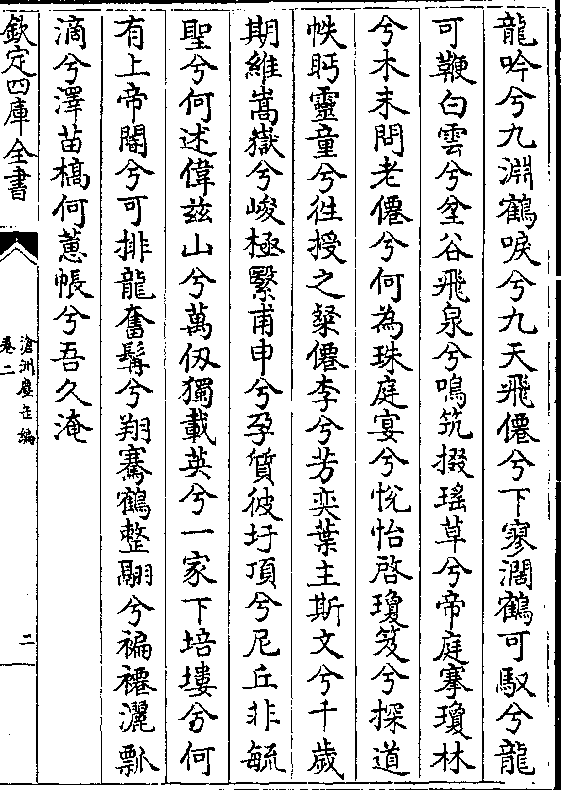 龍吟兮九淵鶴唳兮九天飛僊兮下寥濶鶴可馭兮龍
可鞭白雲兮坌谷飛泉兮鳴筑掇瑤草兮帝庭搴瓊林
兮木末問老僊兮何為珠庭宴兮悅怡啓瓊笈兮探道
帙眄靈童兮徃授之粲僊李兮芳奕葉主斯文兮千歲
期維嵩嶽兮峻極繄甫申兮孕質彼圩頂兮尼丘非毓
聖兮何述偉兹山兮萬仭獨載英兮一家下培塿兮何
有上帝閽兮可排龍奮髯兮翔騫鶴整翮兮褊褼灑瓢
滴兮澤苗槁何蕙帳兮吾久淹
欽定四庫全書
滄洲塵缶編
卷二
二